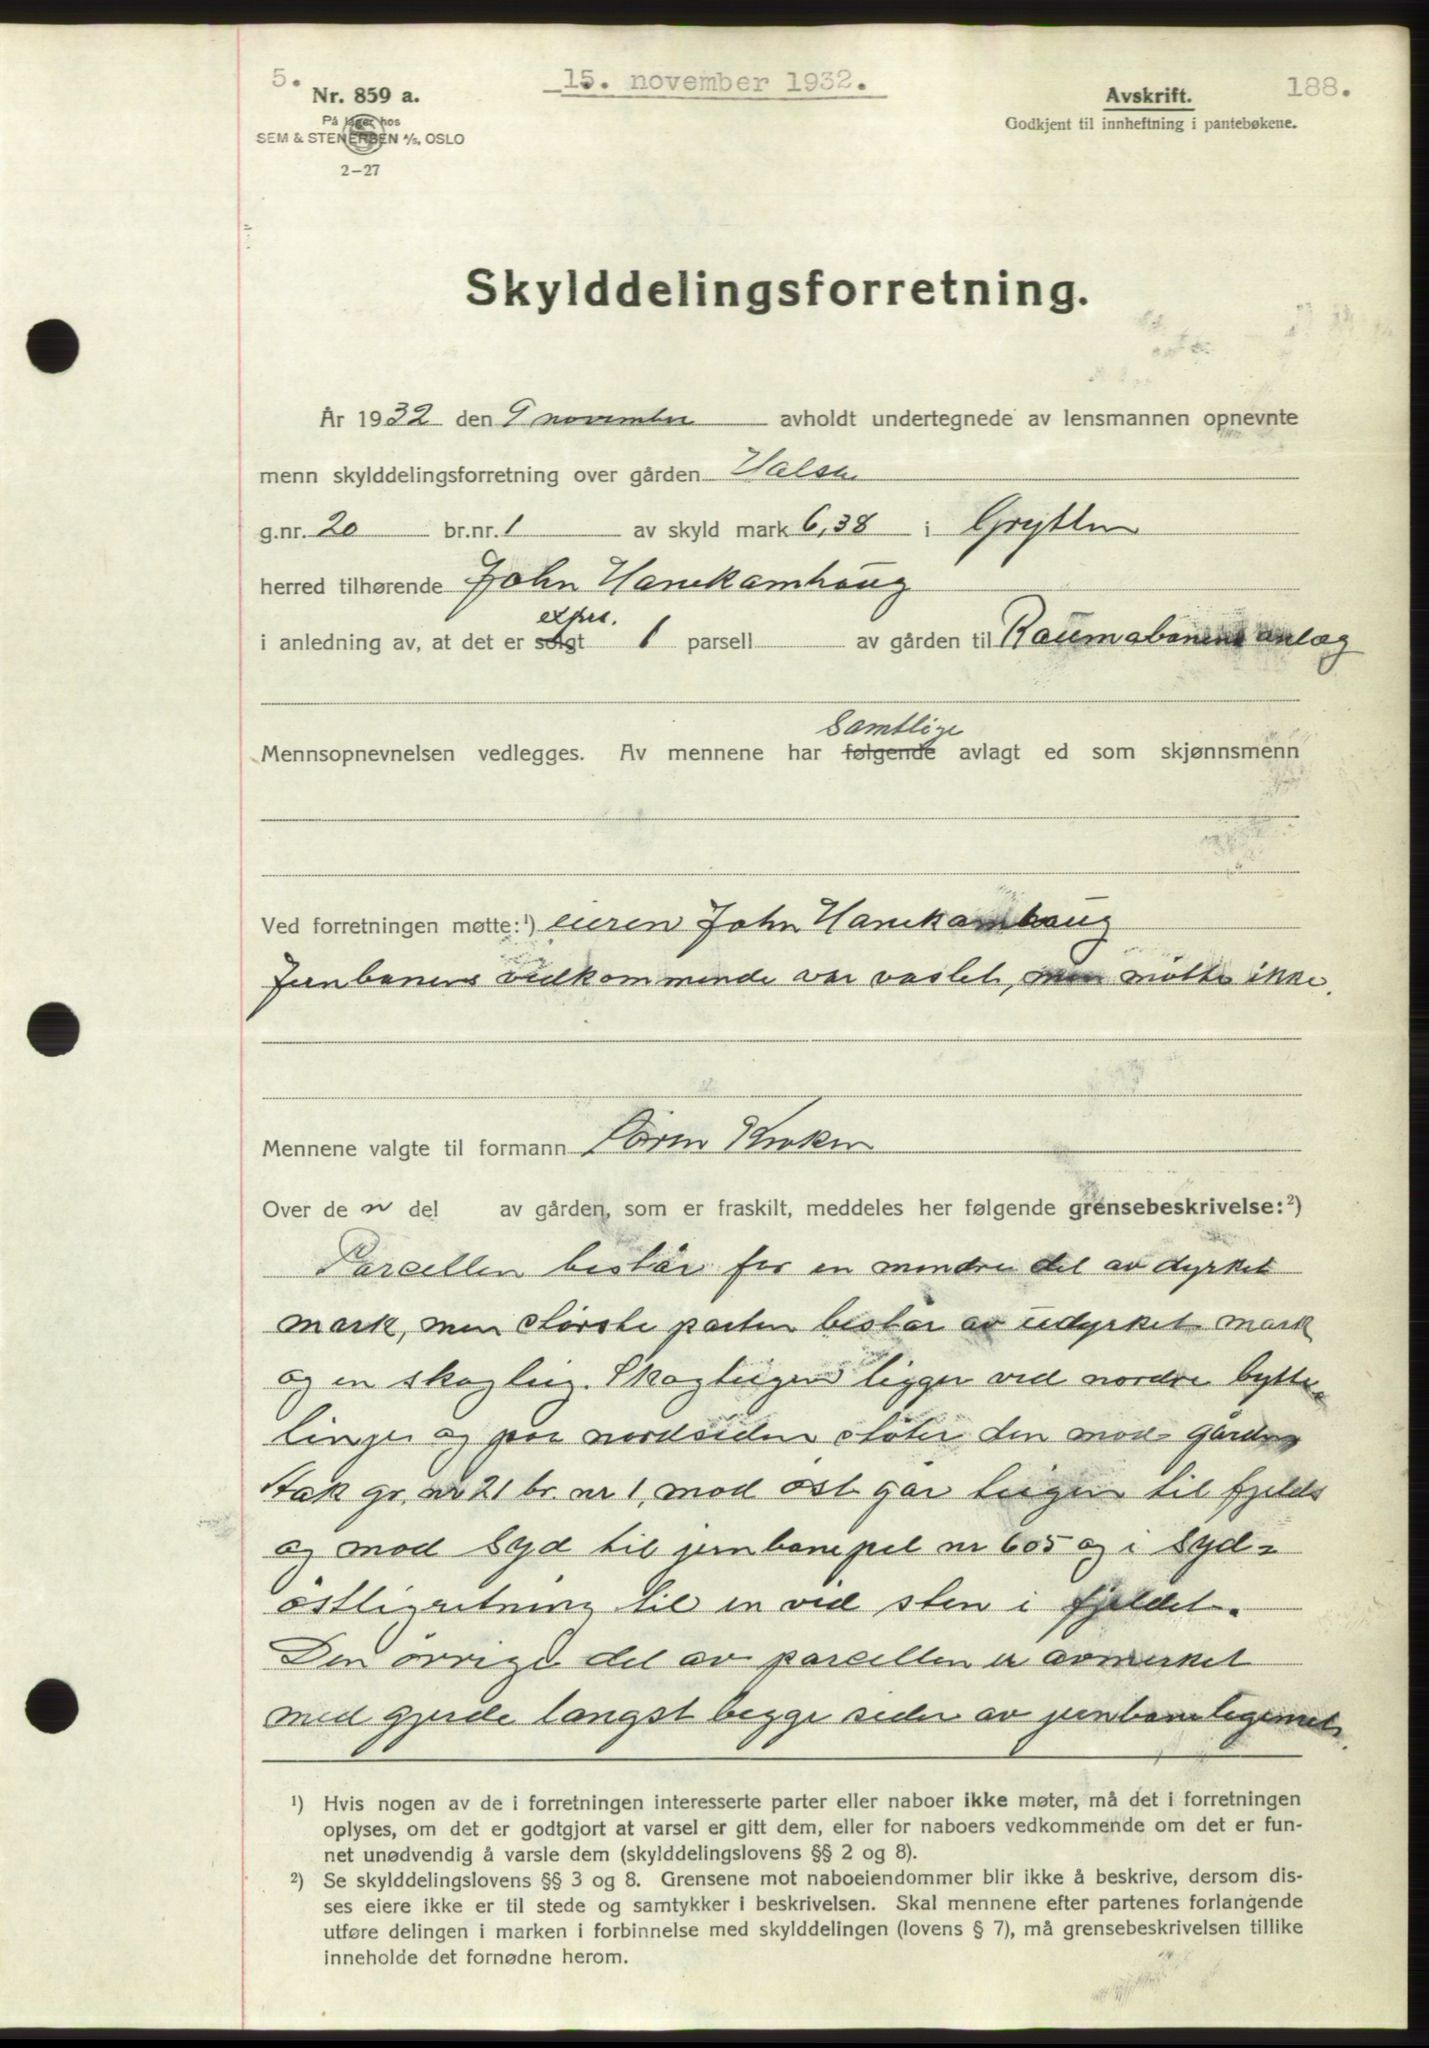 5.
15. november 1932.
188.
Nr. 859 a.
På lager hos
SEM & STENERSEN A/S, OSLO
2—27
Avskrift.
Godkjent til innheftning i pantebøkene.
Skylddelingsforretning.
År 1932 den 9 november avholdt undertegnede av lensmannen opnevnte
menn skylddelingsforretning over gården Halsa
g.nr. 20 br.nr. 1 av skyld mark 6,38 i Grytten
herred tilhørende John Hanekamhaug
expr.
i anledning av, at det er solgt 1 parsell av gården til Raumabanens anlæg
Samtlige
Mennsopnevnelsen vedlegges. Av mennene har følgende avlagt ed som skjønnsmenn
Ved forretningen møtte:¹) eieren John Hanekamhaug
Jernbanens vedkommende var varslet, men møtte ikke.
Mennene valgte til formann Søren Kroken
Over de n del av gården, som er fraskilt, meddeles her følgende grensebeskrivelse:²)
Parcellen består for en mindre del av dyrket
mark, men største parten består av udyrket mark
og en skogteig. Skogteigen ligger ved nordre bytte-
linje og paa nordsiden støter den mod gården
Stak gr. nr 21 br. nr 1, mod øst går teigen til fjelds
og mod syd til jernbanepel nr 605 og i syd=
østlig retning til en sten i fjeldet.
Den øvrige del av parcellen er avmerket
med gjerde langst begge sider av jernbanelegemet.
¹) Hvis nogen av de i forretningen interesserte parter eller naboer ikke møter, må det i forretningen
oplyses, om det er godtgjort at varsel er gitt dem, eller for naboers vedkommende om det er fun-
net unødvendig å varsle dem (skylddelingslovens §§ 2 og 8).
²) Se skylddelingslovens §§ 3 og 8. Grensene mot naboeiendommer blir ikke å beskrive, dersom dis-
ses eiere ikke er til stede og samtykker i beskrivelsen. Skal mennene efter partenes forlangende
utføre delingen i marken i forbinnelse med skylddelingen (lovens § 7), må grensebeskrivelsen tillike
inneholde det fornødne herom.